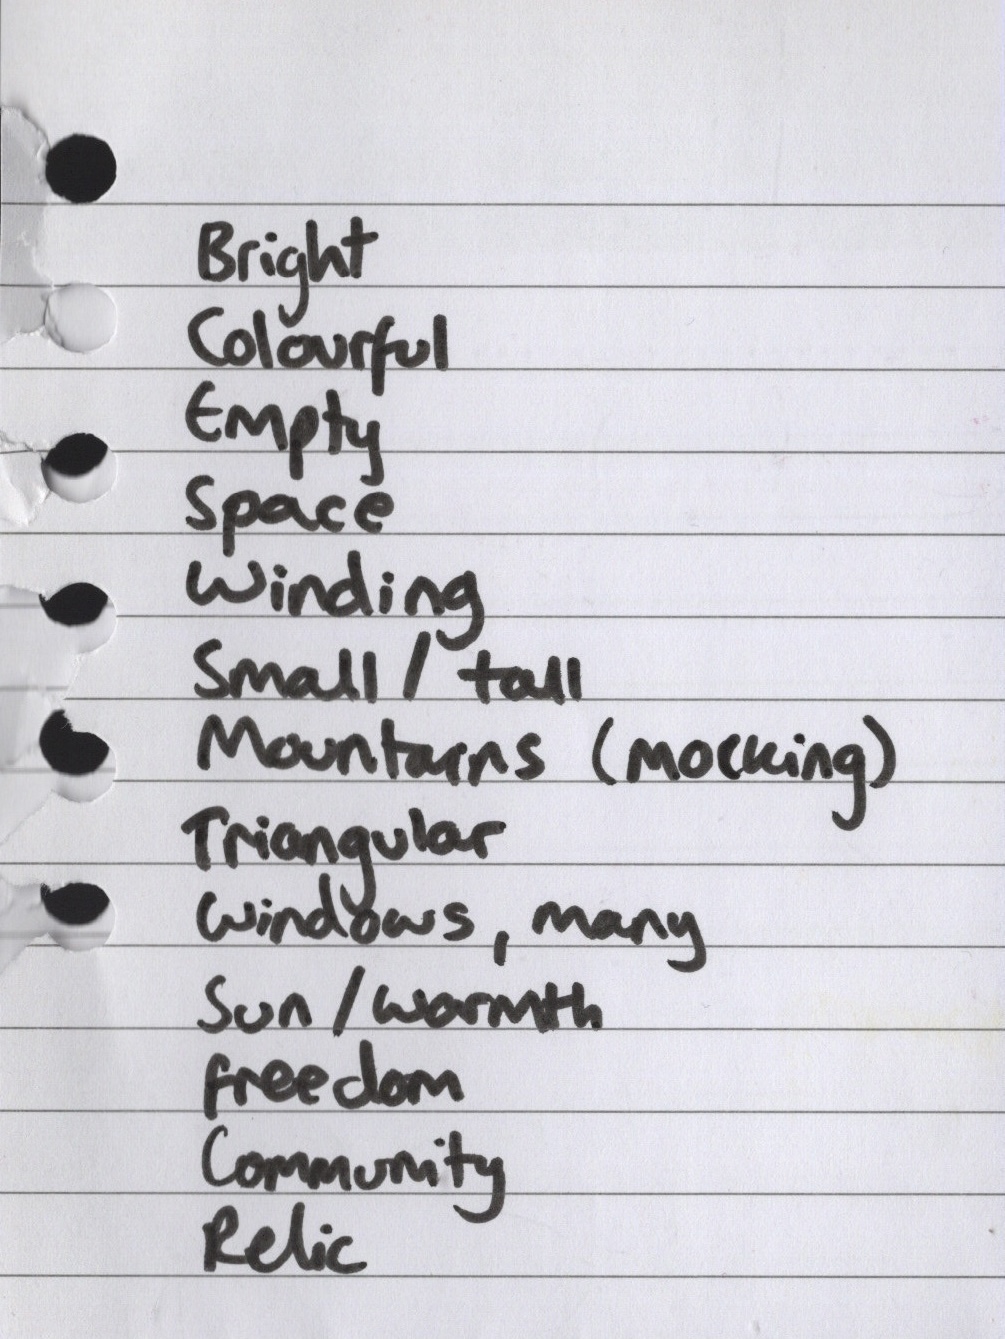 Bright
Colourful
Empty
Space
Winding
Small / tall
Mountains (mocking)
Triangular
Windows, many
Sun / warmth
freedom
Community
Relic